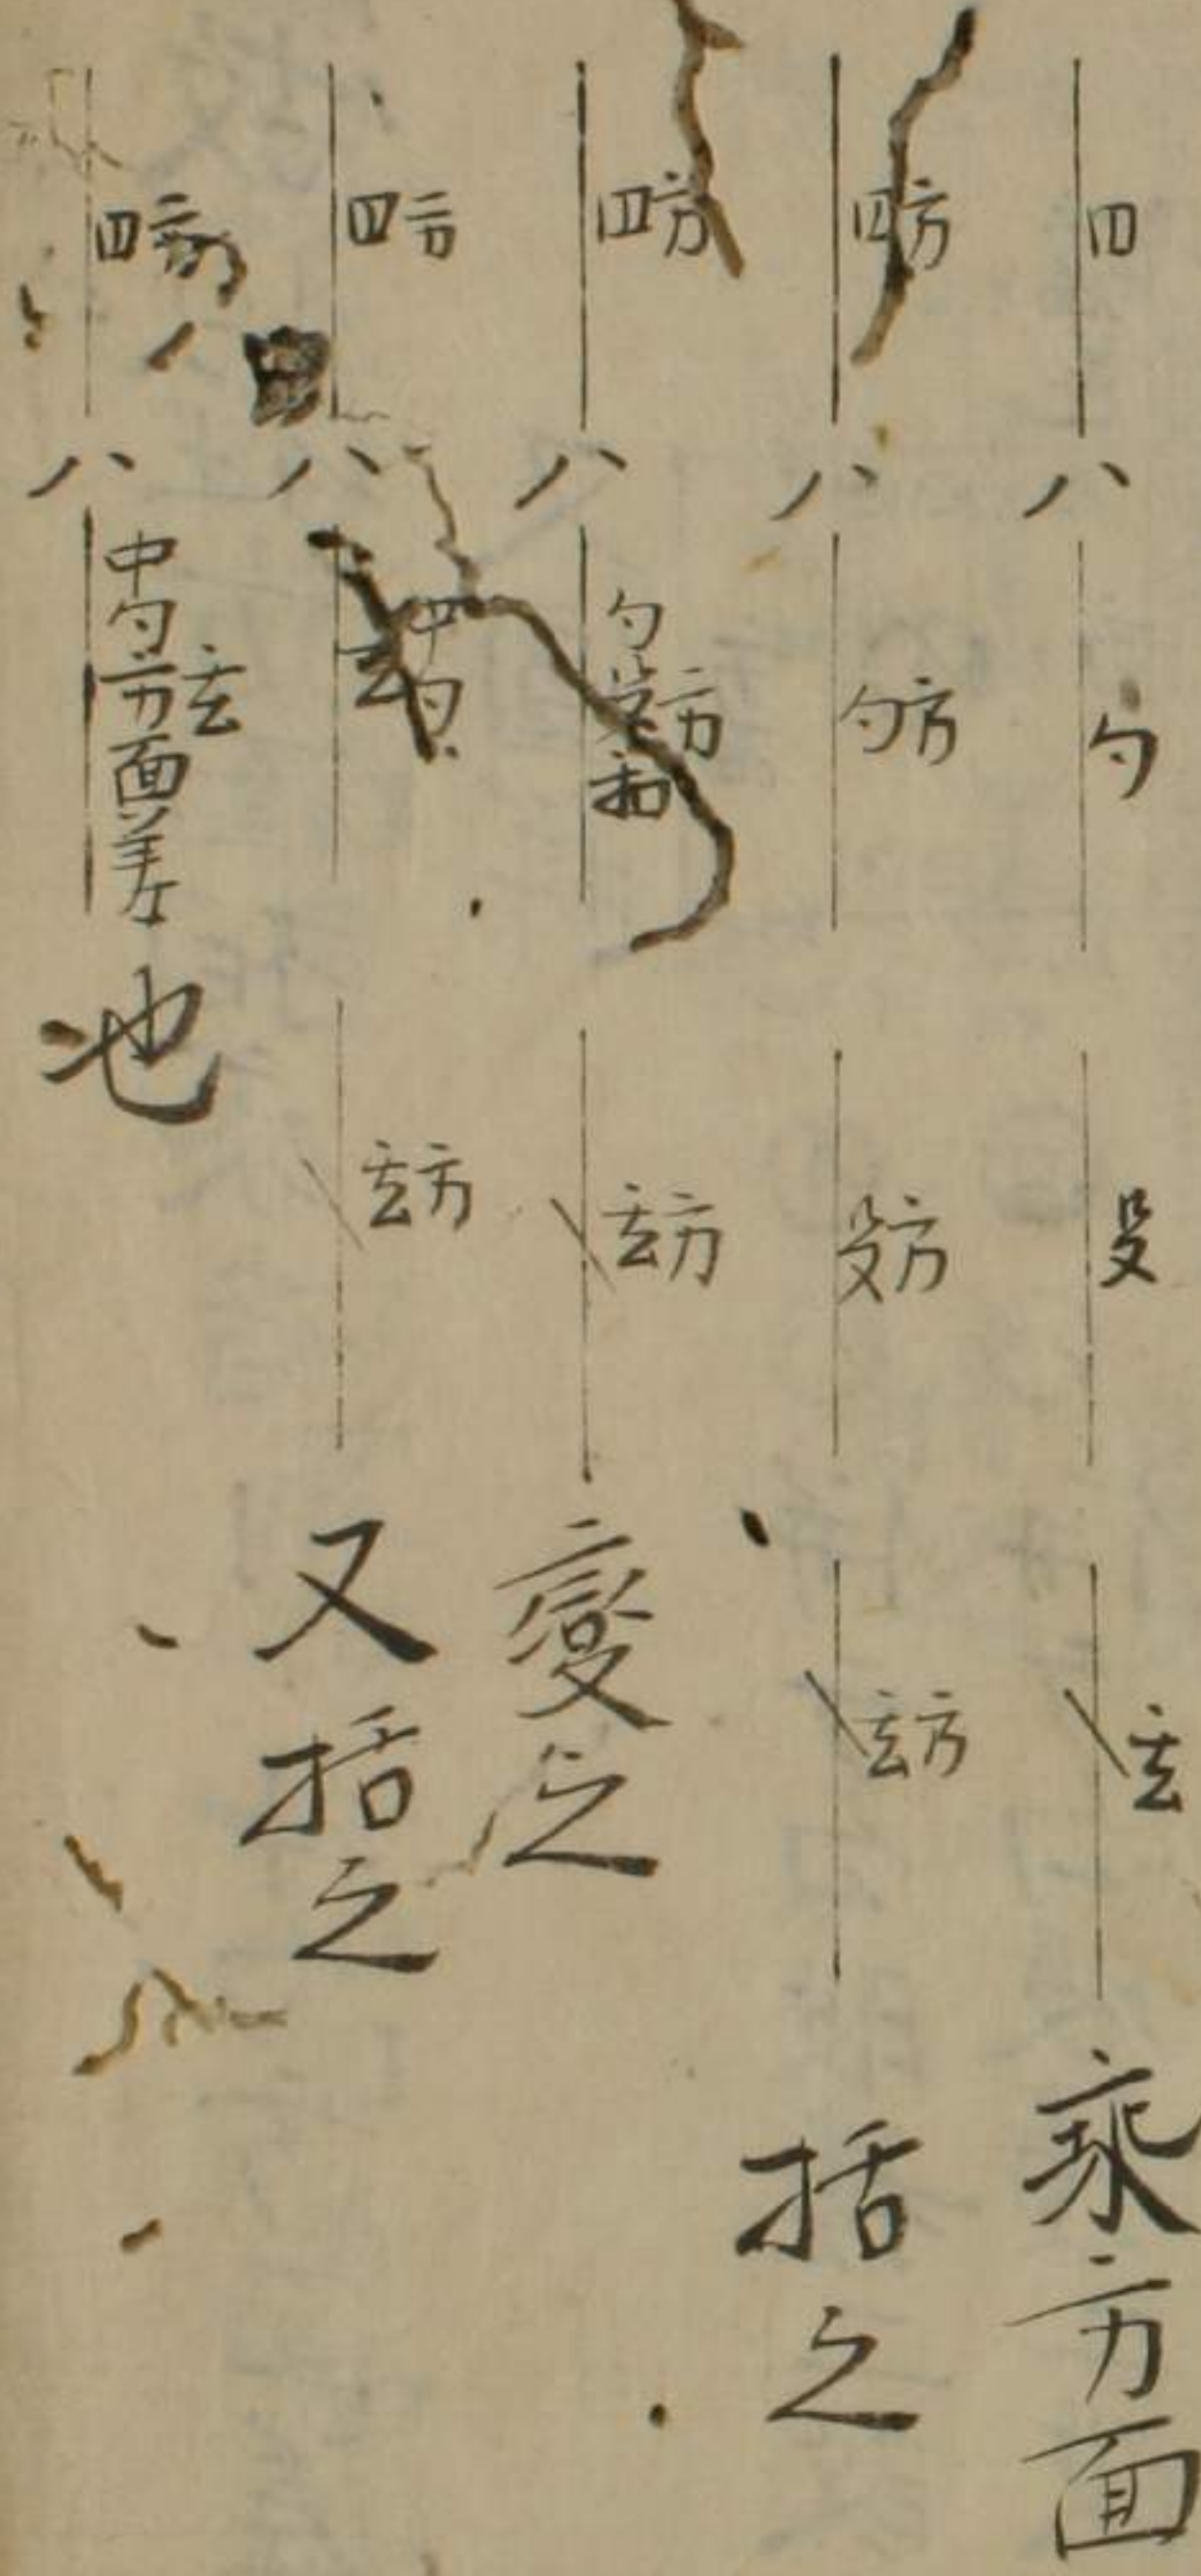 四 八 勾 殳 玄 乘方面
四方 八 勾方 殳方 玄方 括之
四方 八 勾 方 和 玄方 變之
四方 八 中勾 玄 玄方 又括之
四方 八 中勾方面差 玄 也